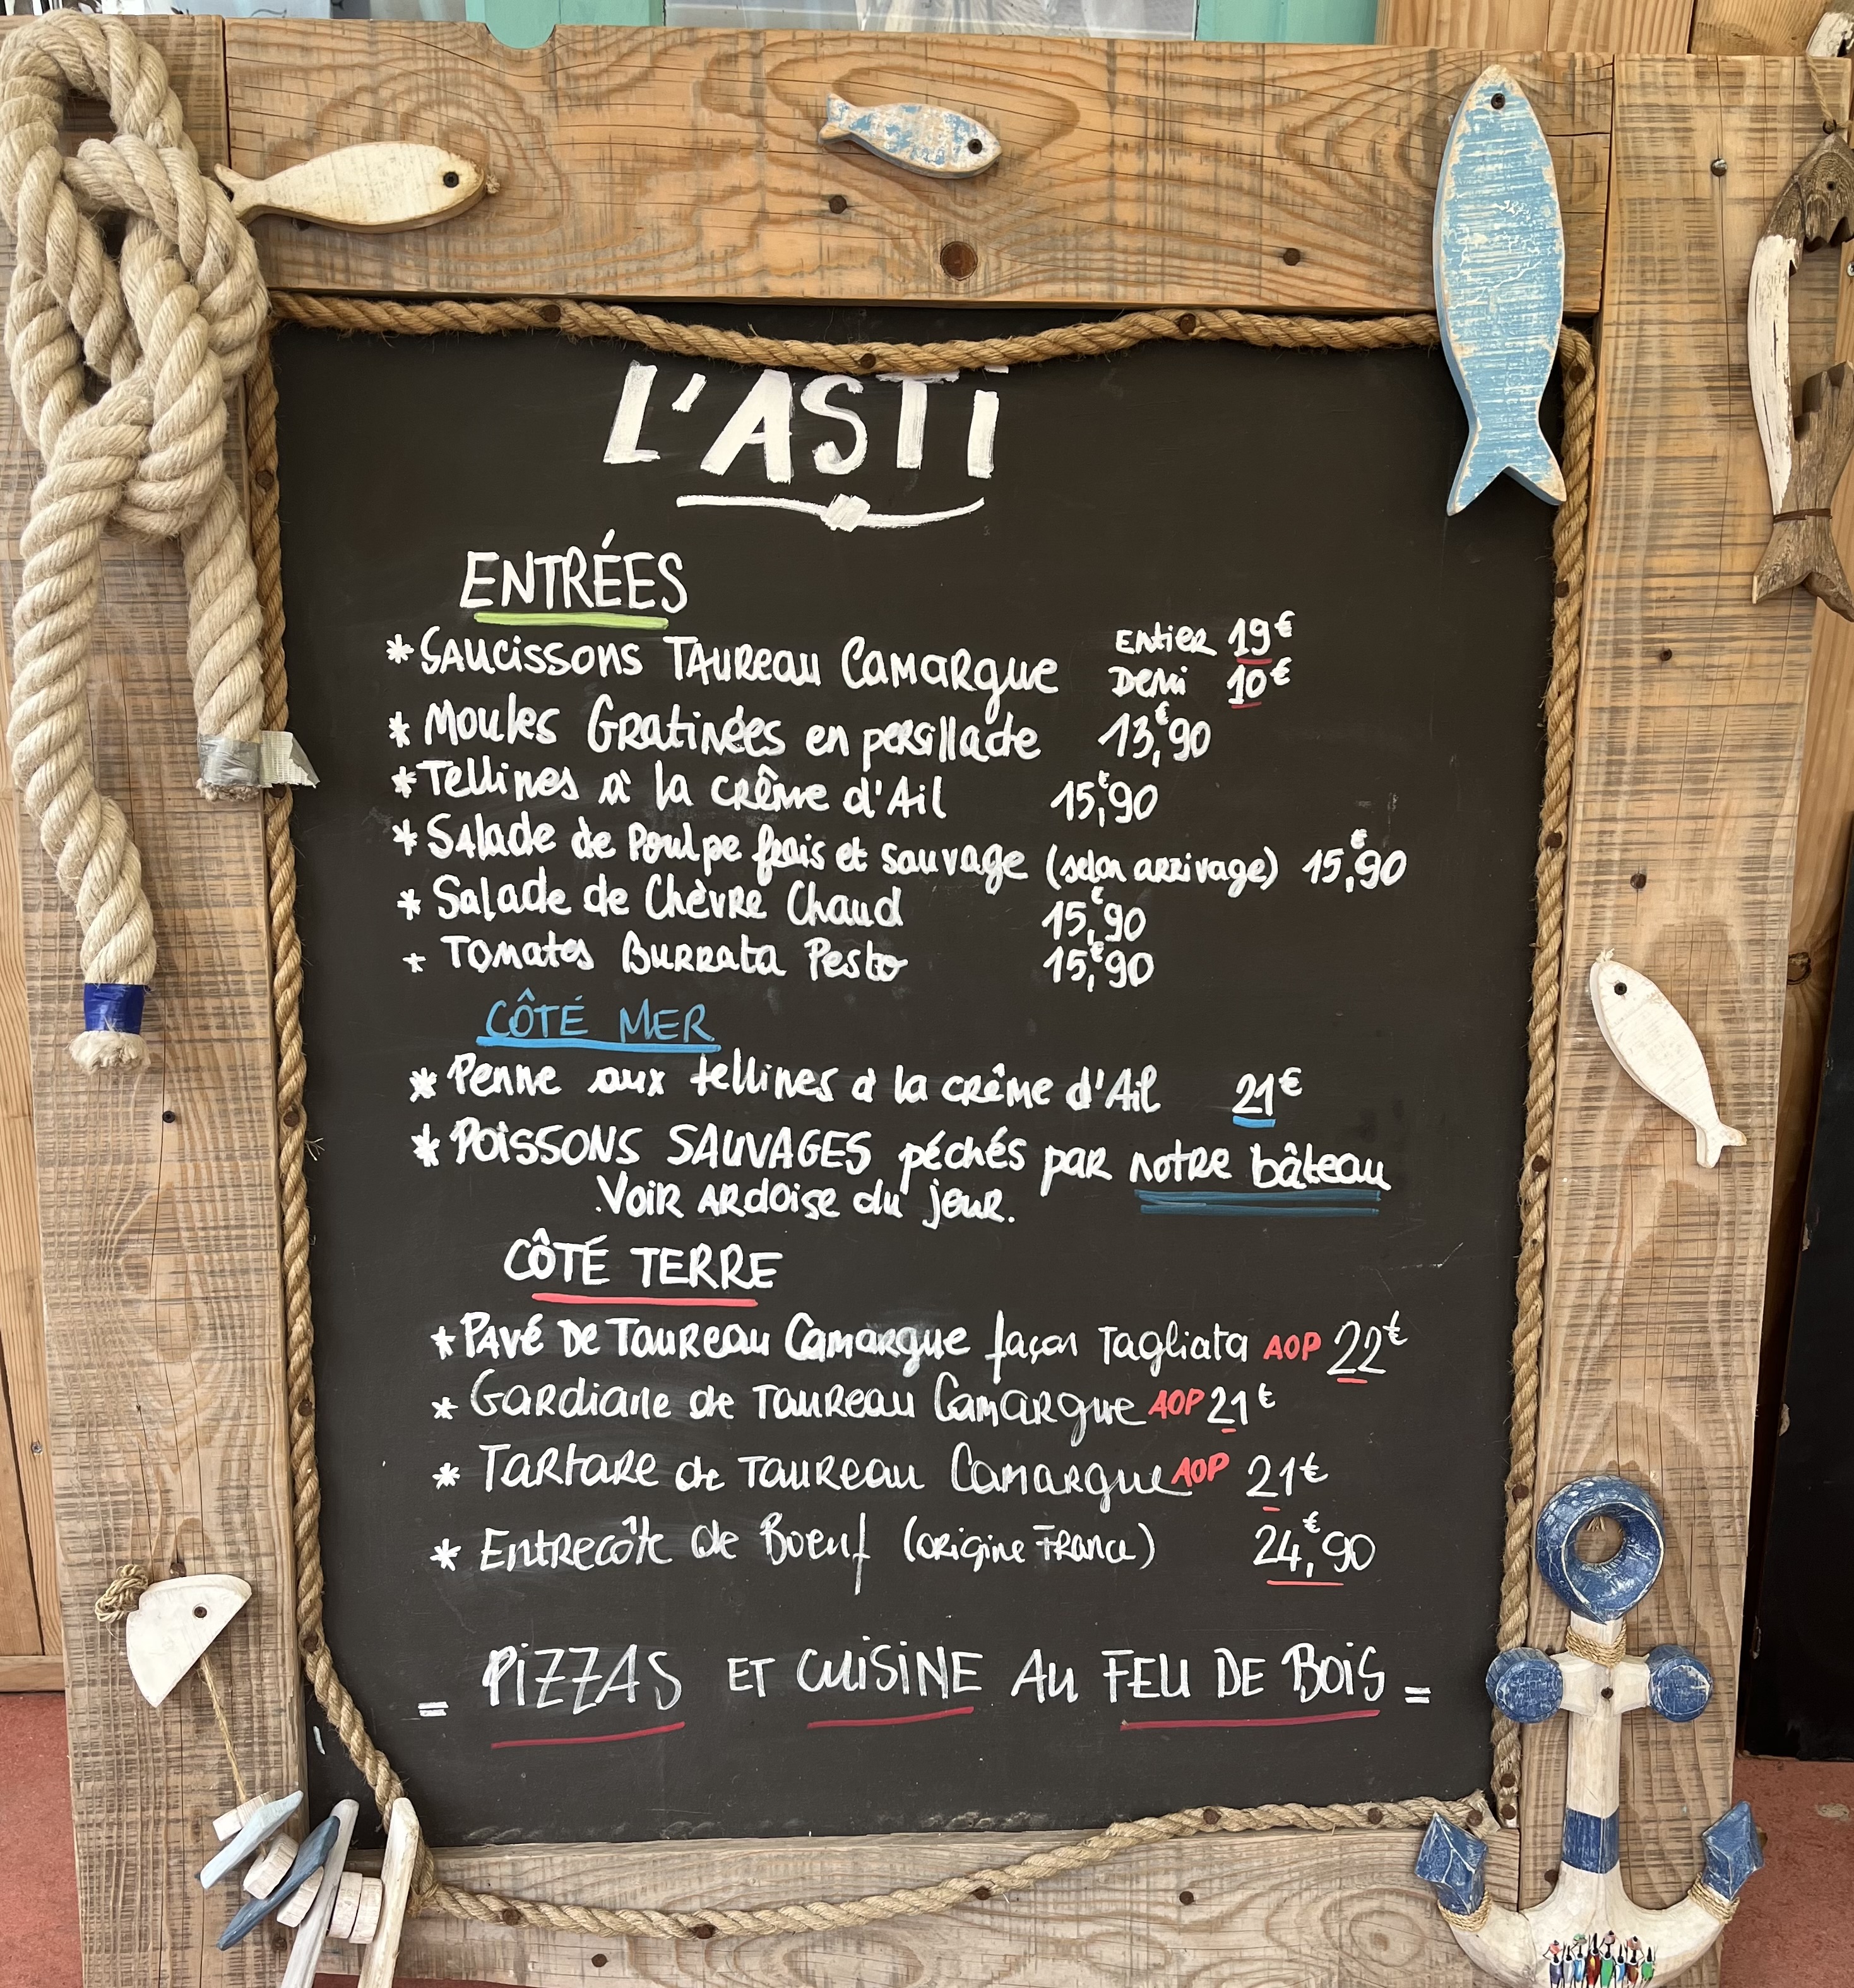 L'ASTi
ENTRÉES
* SAUCissons TAUREAU CAMARgue Entier 19€
Demi 10€
* Moules Gratinées en persillade 13,€90
* Tellines à la crême d'Ail 15,€90
* Salade de Poulpe frais et sauvage (selon arrivage) 15,€90
* Salade de Chèvre Chaud 15,€90
* Tomates Burrata Pesto 15,€90
CÔTÉ MER
* Penne aux tellines à la crême d'Ail 21€
* POISSONS SAUVAGES péchés par notre bâteau
.Voir Ardoise du jour.
CÔTÉ TERRE
* Pavé De Taureau Camargue façon Tagliata AOP 22€
* Gardiane de Taureau Camargue AOP 21€
* Tartare de Taureau Camargue AOP 21€
* Entrecôte de Boeuf (origine France) 24,€90
= PiZZAS ET CUiSiNE AU FEU DE BOiS =